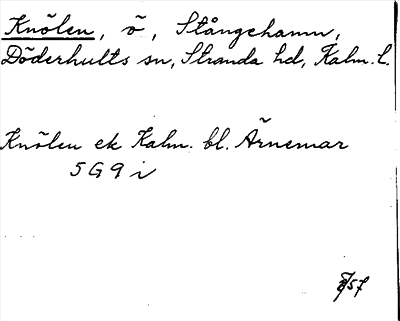 Knölen, ö, Stångehamn,
Döderhults sn, Stranda hd, Kalm. l.
Knölen ek Kalm. bl. Ärnemar
5 G 9 i
57